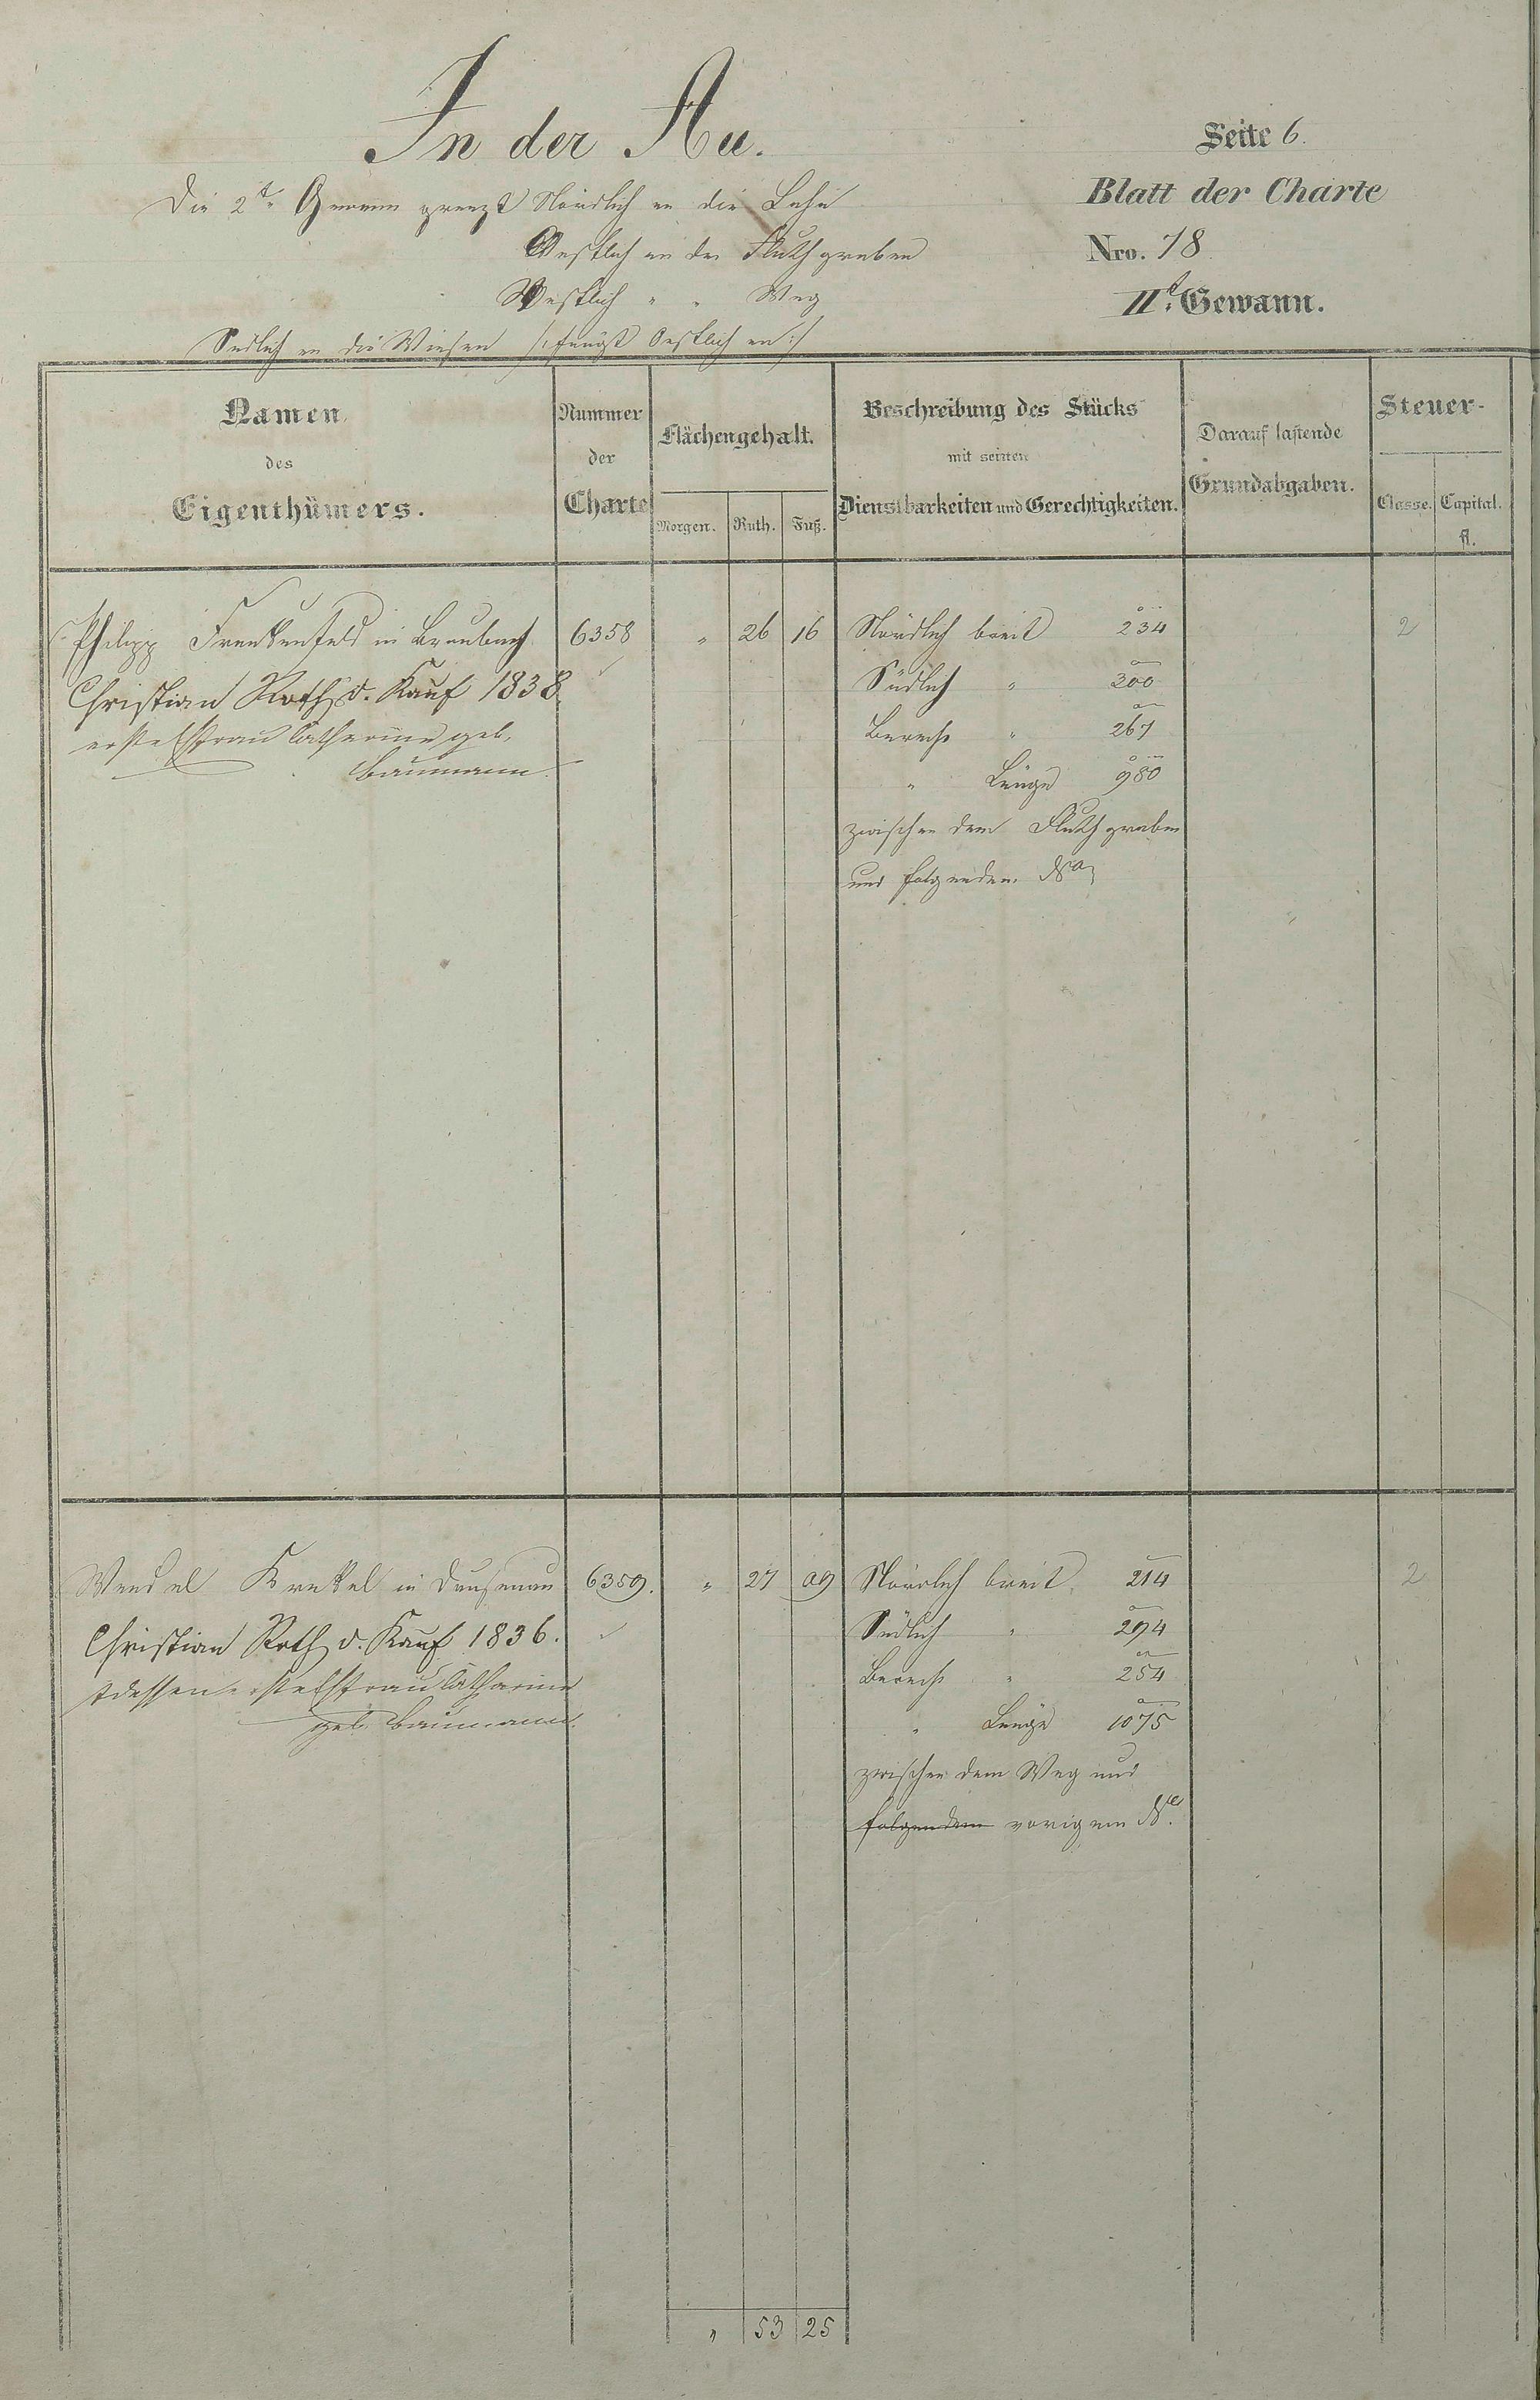 In der Au.
Seite 6.
Die 2te Gewann grenzt Nördlich an die Lahn
Blatt der Charte
Oestlich an den Fluthgraben
Nro. 18.
Westlich " " Weg
IIt. Gewann.
Südlich an die Wiesen /: fängt Oestlich an :/
Namen des Eigenthümers.
Nummer der Charte
Flächengehalt.
Morgen. Ruth. Fuß.
Beschreibung des Stücks mit seinen Dienstbarkeiten und Gerechtigkeiten.
Darauf lastende Grundabgaben.
Steuer-
Classe. Capital. fl.
Philipp Frankenfeld in Braubach 6358 " 26 16 Nördlich breit 234 2
Christian Roth d. Kauf 1838. Südlich " 300
erste Ehfrau Catharine geb. Berech " 267
Baumann.
" Länge 980
zwischen dem Fluthgraben
und folgenden No
Wendel Krekel in Dausenau 6359. " 27 09 Nördlich breit 214 2
Christian Roth d. Kauf 1836. Südlich " 294
dessen erste Ehfrau Catharine Berech " 254
geb. Baumann.
" Länge 1075
zwischen dem Weg und
folgendem vorigem No.
" 53 25